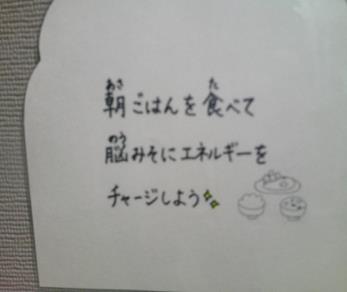 朝ごはんを食べて
脳みそにエネルギーを
チャージしよう